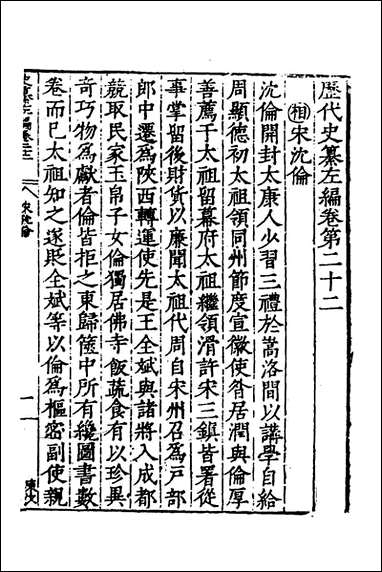 歷代史纂左編卷第二十二
相宋沈倫
沈倫開封太康人少習三禮於嵩洛間以講學自給
周顯德初太祖領同州節度宣徽使昝居潤與倫厚
善薦于太祖留幕府太祖繼領滑許宋三鎮皆署從
事掌留後財貨以廉聞太祖代周自宋州召爲戶部
郎中遷爲陝西轉運使先是王全斌與諸將入成都
競取民家玉帛子女倫獨居佛寺飯蔬食有以珍異
奇巧物爲獻者倫皆拒之東歸篋中所有纔圖書數
卷而已太祖知之遂貶全斌等以倫爲樞密副使親